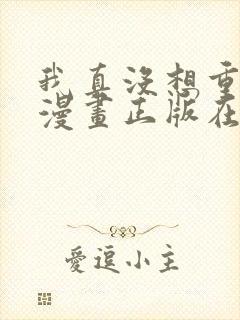 我真沒想重
漫畫正版在
愛逗小主